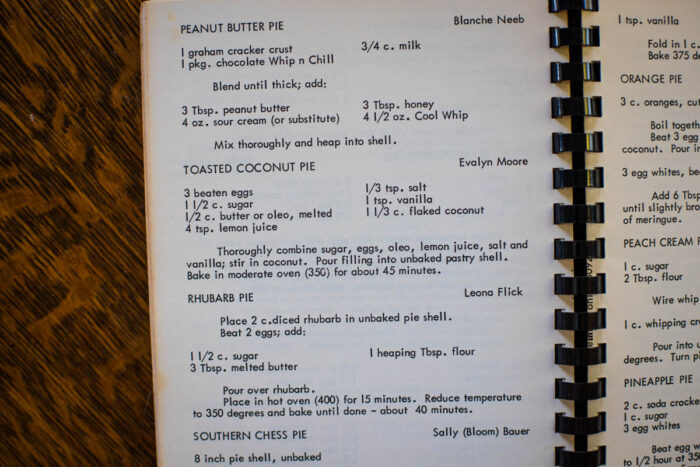 PEANUT BUTTER PIE Blanche Neeb
1 graham cracker crust 3/4 c. milk
1 pkg. chocolate Whip n Chill
Blend until thick; add:
3 Tbsp. peanut butter 3 Tbsp. honey
4 oz. sour cream (or substitute) 4 1/2 oz. Cool Whip
Mix thoroughly and heap into shell.
TOASTED COCONUT PIE Evalyn Moore
3 beaten eggs 1/3 tsp. salt
1 1/2 c. sugar 1 tsp. vanilla
1/2 c. butter or oleo, melted 1 1/3 c. flaked coconut
4 tsp. lemon juice
Thoroughly combine sugar, eggs, oleo, lemon juice, salt and
vanilla; stir in coconut. Pour filling into unbaked pastry shell.
Bake in moderate oven (350) for about 45 minutes.
RHUBARB PIE Leona Flick
Place 2 c.diced rhubarb in unbaked pie shell.
Beat 2 eggs; add:
1 1/2 c. sugar 1 heaping Tbsp. flour
3 Tbsp. melted butter
Pour over rhubarb.
Place in hot oven (400) for 15 minutes. Reduce temperature
to 350 degrees and bake until done - about 40 minutes.
SOUTHERN CHESS PIE Sally (Bloom) Bauer
8 inch pie shell, unbaked
1 tsp. vanilla
Fold in 1 c.
Bake 375 de
ORANGE PIE
3 c. oranges, cut
Boil togeth
Beat 3 egg
coconut. Pour in
3 egg whites, be
Add 6 Tbs
until slightly bro
of meringue.
PEACH CREAM
1 c. sugar
2 Tbsp. flour
Wire whip
1 c. whipping cr
Pour into u
degrees. Turn
PINEAPPLE PIE
2 c. soda cracke
1 c. sugar
3 egg whites
Beat egg w
to 1/2 hour at 35